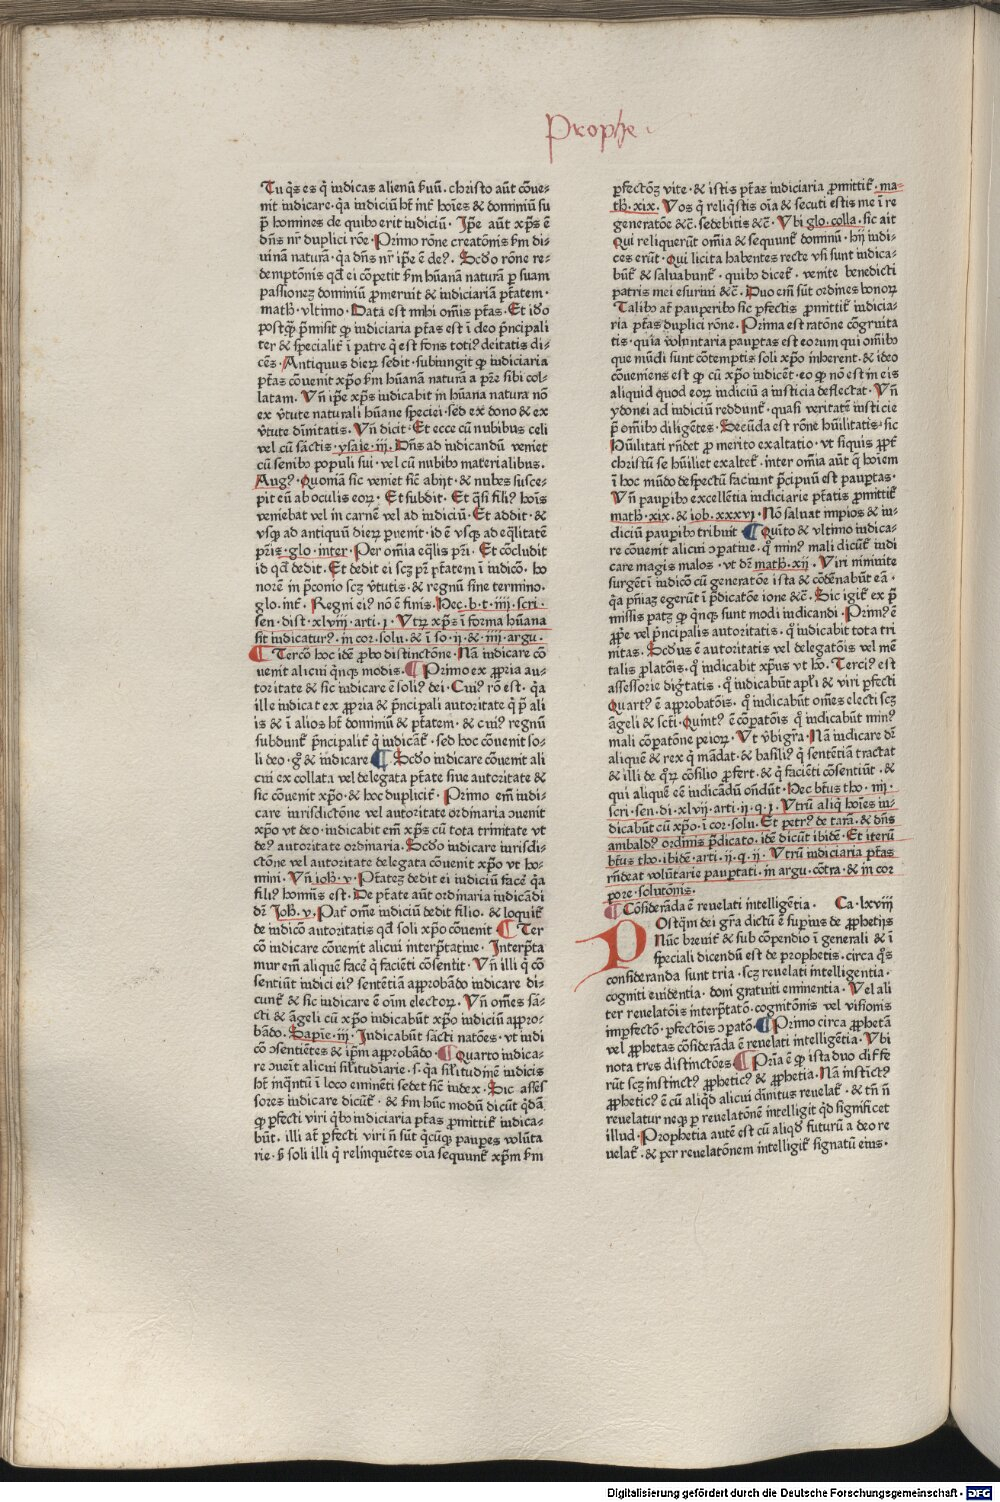 Prophe·
Tu q̄s es q̄ iudicas alienū ẜuū. christo aūt cōue-
nit iudicare· q̄a iudiciū hēt int̄ hoīes & dominiū su
p̄ homines de quibꝰ erit iudiciū· Ip̄e aūt xp̄s ē
dn̄s nr̄ duplici rōe· Primo rōne creatōnis ẜm di-
uinā naturā· q̄a dn̄s nr̄ ip̄e ē deꝰ. Scd̄o rōne re-
demptōnis qd̄ ei cōpetit ẜm hūanā naturā p̱ suam
passionez dominiū ꝓmeruit & iudiciariā ptātem·
math· vltimo· Data est mihi om̄is ptās· Et id̓o
postq̄ꝫ p̄misit ꝙ iudiciaria ptās est ī deo p̄ncipali
ter & specialit̄ ī patre q̄ est fons totiꝰ deitatis di-
cēs· Antiquus dieꝝ sedit· subiungit ꝙ iudiciaria
ptās cōuenit xp̄o ẜm hūanā naturā a pr̄e sibi col-
latam· Vn̄ ip̄e xp̄s iudicabit in hūana natura nō
ex v̄tute naturali hūane speciei· sed ex dono & ex
v̄tute diīnitatis· Vn̄ dicit· Et ecce cū nubibus celi
vel cū sāctis· ysaie·iij· Dn̄s ad iudicandū veniet
cū senibꝰ populi sui· vel cū nubibꝰ materialibus·
Augꝰ· Quoniā sic veniet sic̄ abijt· & nubes susce-
pit eū ab oculis eoꝝ· Et subdit· Et q̄si filiꝰ hoīs
veniebat vel in carnē vel ad iudiciū· Et addit· &
vsqꝫ ad antiquū dieꝝ p̱uenit· id ē vsqꝫ ad eq̄litatē
pr̄is· glo·inter· Per om̄ia eq̄lis pr̄i· Et cōcludit
id qd̄ dedit· Et dedit ei scꝫ pr̄ ptātem ī iudicō· ho
norē in p̄conio scꝫ v̄tutis· & regnū sine termino·
glo·int̄· Regni eiꝰ nō ē finis· Hec·b·t·iiij·scri·
sen·dist·xlviij·arti·j· Vtꝝ xp̄s ī forma hūana
sit iudicaturꝰ· in cor·solu·& ī so·ij·& iiij·argu·
Tercō hoc idē ꝓbo distinctōne· Nā iudicare cō
uenit alicui q̄nqꝫ modis· Primo ex ꝓpria au-
toritate & sic iudicare ē soliꝰ dei· Cuiꝰ rō est· q̄a
ille iudicat ex ꝓpria & p̄ncipali autoritate q̄ p̄ ali
is & ī alios hēt dominiū & ptātem· & cuiꝰ regnū
subdunt̄ p̄ncipalit̄ q̄ iudicāt̄· sed hoc cōuenit so-
li deo· gͦ & iudicare Scd̄o iudicare cōuenit ali
cui ex collata vel delegata ptāte siue autoritate &
sic cōuenit xp̄o· & hoc duplicit̄· Primo em̄ iudi-
care iurisdictōne vel autoritate ordinaria ꝯuenit
xp̄o vt deo· iudicabit em̄ xp̄s cū tota trinitate vt
deꝰ autoritate ordinaria· Scd̄o iudicare iurisdi-
ctōne vel autoritate delegata cōuenit xp̄o vt ho-
mini· Vn̄ ioh̄·v· Ptātez dedit ei iudiciū facē̓ q̄a
filiꝰ homīs est· De ptāte aūt ordinaria iudicādi
dr̄· Joh̄·v· Pat̄ om̄e iudiciū dedit filio· & loquit̄
de iudicō autoritatis qd̄ soli xp̄o cōuenit Ter
cō iudicare cōuenit alicui interp̄tatiue· Interp̄ta
mur em̄ aliquē facē̓ q̄ faciēti cōsentit· Vn̄ illi q̄ cō
sentiūt iudici eiꝰ sentētiā approbādo iudicare di-
cunt̄ & sic iudicare ē oīm electoꝝ· Vn̄ om̄es sā-
cti & āgeli cū xp̄o iudicabūt xp̄o iudiciū appro-
bādo· Sapie·iij· Iudicabūt sācti natōes· vt iudi
cō ꝯsentiētes & ip̄m approbādo· Quarto iudica-
re ꝯuēit alicui sil̄itudiarie· s· q̄a sil̄itudīnē iudicis
hēt inq̄ntū ī loco emīenti sedet sic̄ iudex· Sic asses
sores iudicare dicūt̄· & ẜm hūc modū dicūt q̄dā
ꝙ p̱fecti viri q̄bꝰ iudiciaria ptās ꝓmittit̄ iudica-
būt· illi at̄ p̱fecti viri n̄ sūt q̄cūqꝫ paup̱es volūta
rie· ẜ soli illi q̄ relinquētes oīa sequunt̄ xp̄m ẜm
p̱fectōꝫ vite· & istis ptās iudiciaria ꝓmittit̄· ma-
th̄·xix· Vos q̄ reliq̄stis oīa & secuti estis me ī re
generatōe &c̄· sedebitis &c̄· Vbi glo·colla·sic ait
Qui reliquerūt om̄ia & sequunt̄ dominū· hij iudi-
ces erūt· Qui licita habentes recte vsi sunt iudica-
būt̄ & saluabunt̄· quibꝰ dicet̄· venite benedicti
patris mei esuriui &c̄· Duo em̄ sūt ordines bonoꝝ
Talibꝰ at̄ paup̱ibꝰ sic p̱fectis ꝓmittit̄ iudicia-
ria ptās duplici rōne· Prima est ratōne cōgruita
tis· quia volūntaria paup̱tas est eorum qui om̄ibꝰ
que mūdi sunt cōtemptis soli xp̄o inherent· & ideo
cōueniens est ꝙ cū xp̄o iudicēt· eo ꝙ nō est in eis
aliquid quod eoꝝ iudiciū a iusticia deflectat· Vn̄
ydonei ad iudiciū reddunt̄· quasi veritatē iusticie
p̄ om̄ibꝰ diligētes· Secūda est rōne hūilitatis· sic
Hūilitati rn̄det ꝓ merito exaltatio· vt siquis ꝓpt̄
christū se hūiliet exaltet̄· inter om̄ia aūt q̄ hoīem
ī hoc mūdo despectū faciunt p̄cipuū est paup̱tas·
Vn̄ paup̱ibꝰ excellētia iudiciarie ptātis ꝓmittit̄
math̄·xix·& iob·xxxvj· Nō saluat impios & iu-
diciū paup̱ibꝰ tribuit Quīto & vltimo iudica-
re cōuenit alicui ꝯpatiue· q̄ minꝰ mali dicūt̄ iudi
care magis malos· vt dr̄ math̄·xij· Viri niniuite
surgēt ī iudicō cū generatōe ista & cōdēnabūt eā·
q̄a pn̄iaꝫ egerūt ī p̄dicatōe ione &c̄· Sic igit̄ ex p̄
missis patꝫ ꝙ q̄nqꝫ sunt modi iudicandi· Primꝰ ē
ꝓp̄e vel p̄ncipalis autoritatis· q̄ iudicabit tota tri
nitas· Scd̄us ē autoritatis vel delegatōis vel mē
talis ꝓlatōis· q̄ iudicabit xp̄us vt hō· Terciꝰ est
assessorie dig̓tatis· q̄ iudicabūt apl̄i & viri p̱fecti
Quartꝰ ē approbatōis· q̄ iudicabūt om̄es electi scꝫ
āgeli & sct̄i· Quintꝰ ē cōparatōis q̄ iudicabūt minꝰ
mali cōparatōne peioꝝ· Vt v̓bigr̄a· Nā iudicare dr̄
aliquē & rex q̄ mādat· & basiliꝰ q̄ sentētiā tractat
& illi de q̄ꝝ cōsilio ꝓfert· & q̄ faciēti cōsentiūt· &
qui aliquē eē iudicādū on̄dūt· Hec bt̄us tho·iiij·
scri·sen·di·xlvij·arti·ij·q·j· Vtrū aliq̄ hoīes iu-
dicabūt cū xp̄o· ī cor·solu· Et petrꝰ de tarā· & dn̄s
ambaldꝰ ordinis p̄dicatoꝝ· idē dicūt ibidē· Et iterū
bt̄us tho·ibidē·arti·ij·q·ij· Vtrū iudiciaria ptās
rn̄deat volūtarie paup̱tati· in argu·cōtra·& in cor
pore·solutōnis·
Cōsiderāda ē reuelati intelligētia· Ca·lxviij
POstq̄m dei gr̄a dictū ē sup̱ius de ꝓphetijs
Nūc breuit̄ & sub cōpendio ī generali & ī
speciali dicendū est de prophetis· circa q̄s
consideranda sunt tria· scꝫ reuelati intelligentia·
cogniti euidentia· doni gratuiti eminentia· Vel ali
ter reuelatōis interp̄tatō· cognitōnis vel visionis
imp̱fectō· p̱fectōis ꝯpatō· Primo circa ꝓphetā
vel ꝓphetas cōsiderāda ē reuelati intelligētia· Vbi
nota tres distinctōes Prīa ē ꝙ ista duo diffe
rūt scꝫ instinctꝰ ꝓpheticꝰ & ꝓphetia· Nā instīctꝰ
ꝓpheticꝰ ē cū aliqd̄ alicui diuītus reuelat̄· & tn̄ n̄
reuelatur neqꝫ p̱ reuelatōnē intelligit qd̄ significet
illud· Prophetia autē est cū aliqd̄ futurū a deo re
uelat̄· & per reuelatōnem intelligit̄ signatū eius·
Digitalisierung gefördert durch die Deutsche Forschungsgemeinschaft · DFG